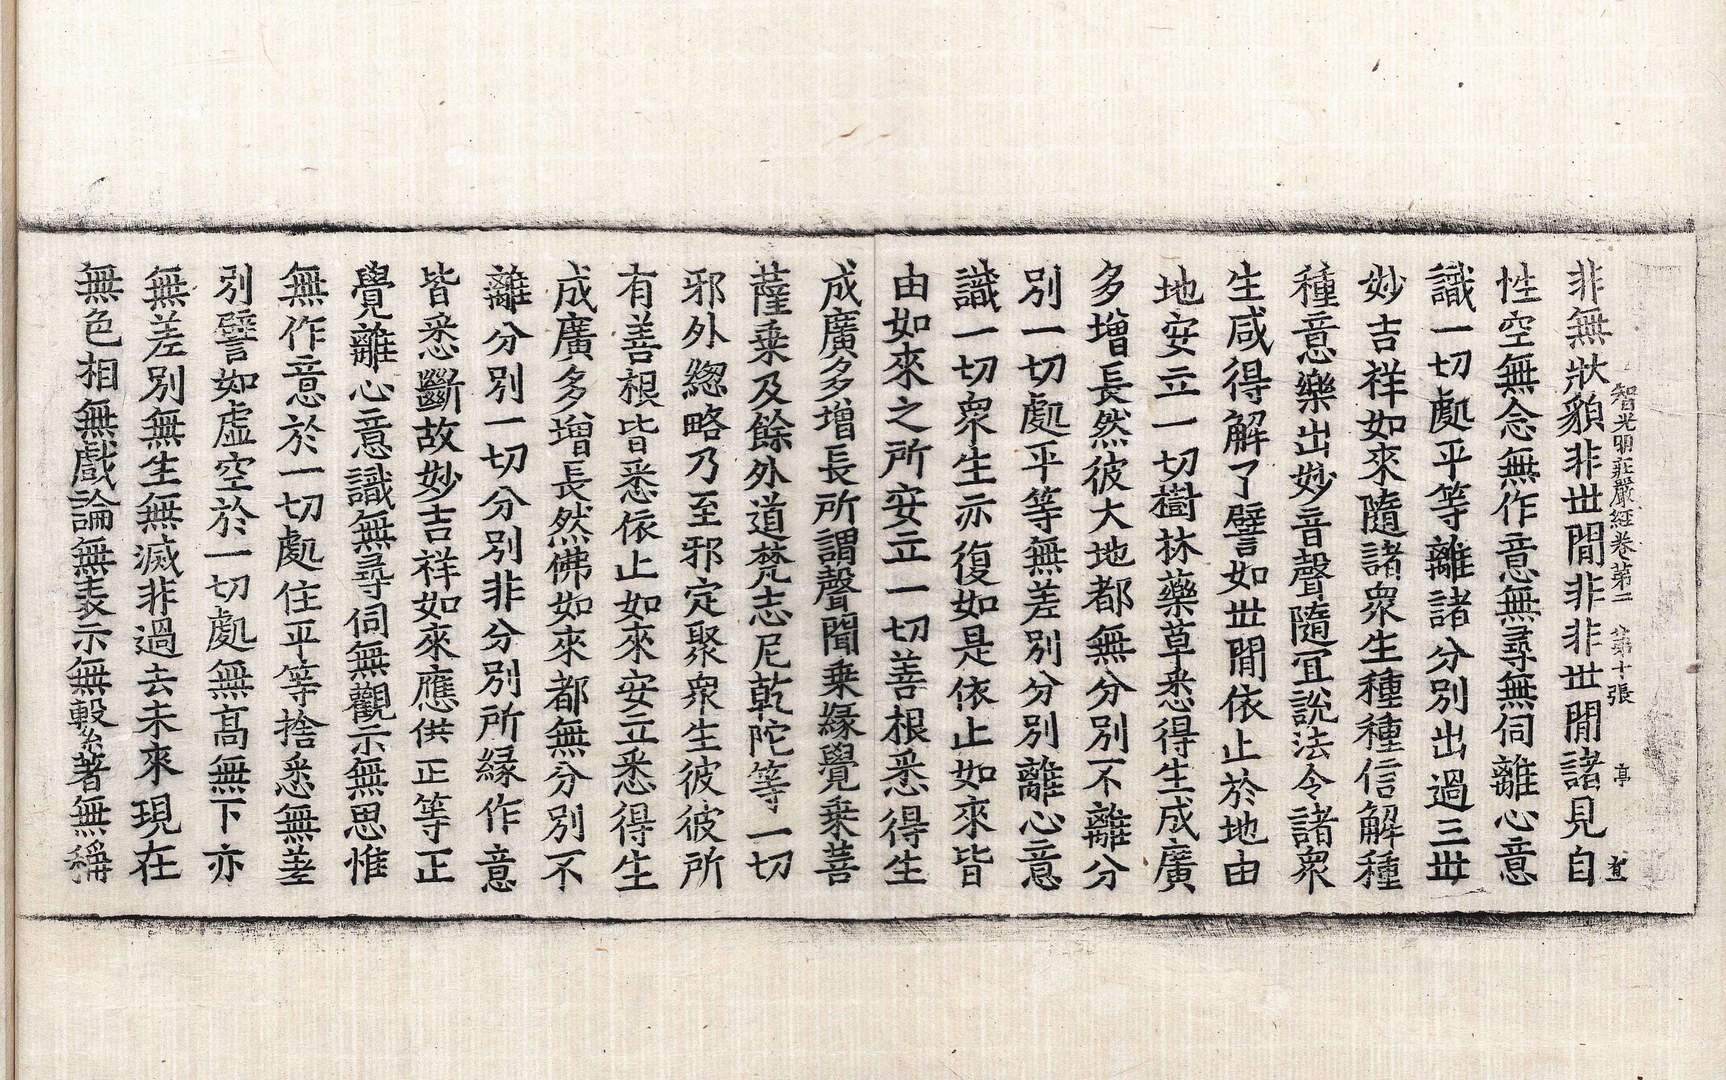 智光明莊嚴經卷第二 第十張 亭
非無狀貌非世間非非世間諸見自
性空無念無作意無尋無伺離心意
識一切處平等離諸分別出過三世
妙吉祥如來隨諸衆生種種信解種
種意樂出妙音聲隨宜說法令諸衆
生咸得解了譬如世間依止於地由
地安立一切樹林藥草悉得生成廣
多增長然彼大地都無分別不離分
別一切處平等無差別分別離心意
識一切衆生亦復如是依止如來皆
由如來之所安立一切善根悉得生
成廣多增長所謂聲聞乗緣覺乗菩
薩乗及餘外道梵志尼乾陀等一切
邪外緫略乃至邪定聚衆生彼彼所
有善根皆悉依止如來安立悉得生
成廣多增長然佛如來都無分別不
離分別一切分別非分別所緣作意
皆悉斷故妙吉祥如來應供正等正
覺離心意識無尋伺無觀示無思惟
無作意於一切處住平等捨悉無差
別譬如虛空於一切處無高無下亦
無差別無生無滅非過去未來現在
無色相無戲論無表示無繫著無稱